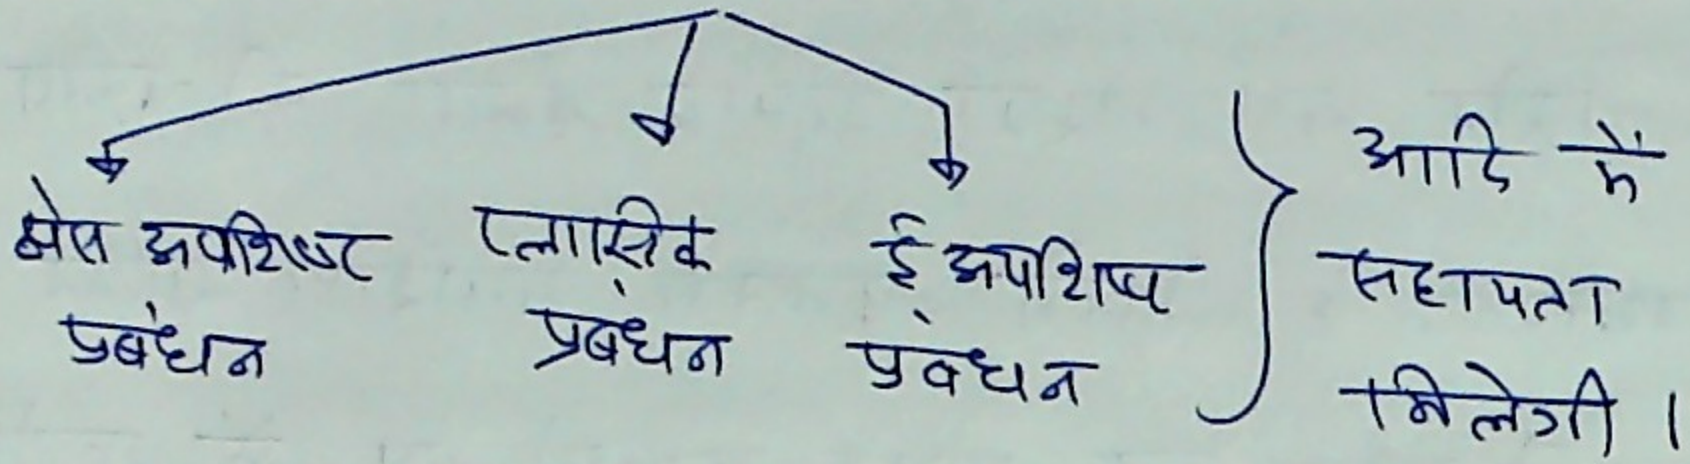 ठोस अपशिष्ट प्रबंधन
प्लास्टिक प्रबंधन
ई अपशिष्ट प्रबंधन
आदि में
सहायता
मिलेगी।